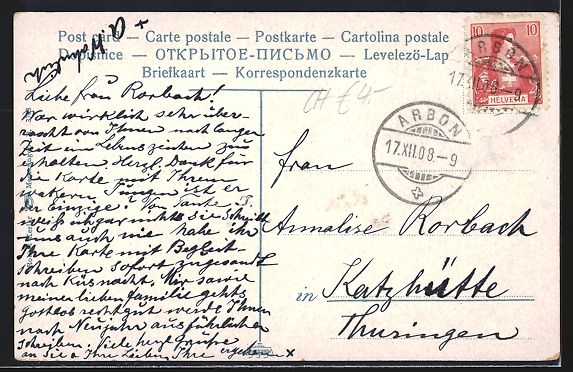 Post card — Carte postale — Postkarte — Cartolina postale
Dopisnice — ОТКРЫТОЕ-ПИСЬМО — Levelező-Lap
Briefkaart — Korrespondenzkarte
CH £ 4.-
10 10
HELVETIA
ARBON
17.XII.08-9
ARBON
17.XII.08-9
Liebe Frau Rorbach!
War wirklich sehr über-
rascht von Ihnen nach langer
Zeit ein Lebenszeichen zu
erhalten Herzl. Dank für
die Karte mit Ihrem
Jungen ist er
Ihr Einziger? Von Tante S.
weiß ich gar nichts sie Schreibt
uns auch nie habe ihr
Ihre Karte mit Begleit-
schreiben Sofort zugesandt
nach Küsnacht. Mir sowie
meiner lieben Familie gehts
gottlob recht gut werde Ihnen
nach Neujahr ausführlicher
schreiben. Viele herzl Grüsse
an Sie u Ihre Lieben Ihre
Frau
Annalise Rorbach
in Katzhütte
Thuringen